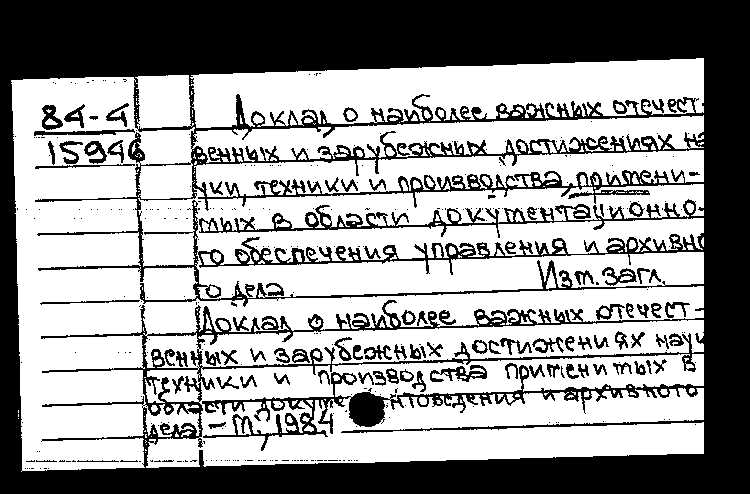 84-4
15946
Доклад о наиболее важных отечест-
венных и зарубежных достижениях на
уки, техники и производства, примени-
мых в области документационно-
го обеспечения управления и архивно
го дела. Изм. загл.
Доклад о наиболее важных отечест-
венных и зарубежных достижениях науки
техники и производства применимых в
области докуме нтоведения и архивного
дела - М., 1984